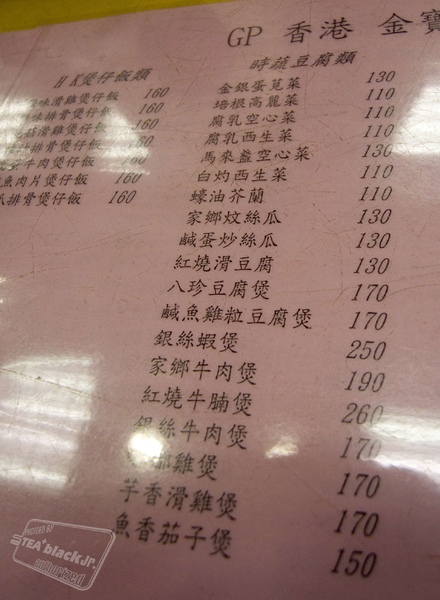 GP 香港 金寶
HK煲仔飯類
味滑雞煲仔飯 160
味排骨煲仔飯 160
菇滑雞煲仔飯 160
排骨煲仔飯 160
牛肉煲仔飯 160
魚肉片煲仔飯 160
排骨煲仔飯 160
時蔬豆腐類
金銀蛋莧菜 130
培根高麗菜 110
腐乳空心菜 110
腐乳西生菜 110
馬來盞空心菜 130
白灼西生菜 110
蠔油芥蘭 110
家鄉炆絲瓜 130
鹹蛋炒絲瓜 130
紅燒滑豆腐 130
八珍豆腐煲 170
鹹魚雞粒豆腐煲 170
銀絲蝦煲 250
家鄉牛肉煲 190
紅燒牛腩煲 260
銀絲牛肉煲 170
雞煲 170
芋香滑雞煲 170
魚香茄子煲 150
PHOTOED BY
STEA+blackJr.
authorized